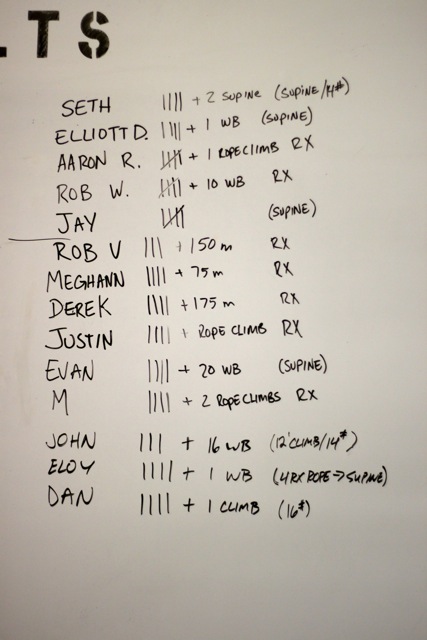 LTS
SETH |||| + 2 SUPINE (SUPINE/14#)
ELLIOTT D. |||| + 1 WB (SUPINE)
AARON R. 卌 + 1 ROPE CLIMB RX
ROB W. 卌 + 10 WB RX
JAY 卌 (SUPINE)
ROB V ||| + 150 m RX
MEGHANN |||| + 75 m RX
DEREK |||| + 175 m RX
JUSTIN |||| + ROPE CLIMB RX
EVAN |||| + 20 WB (SUPINE)
M |||| + 2 ROPE CLIMBS RX
JOHN ||| + 16 WB (12' CLIMB/14#)
ELOY |||| + 1 WB (4 RX ROPE → SUPINE)
DAN |||| + 1 CLIMB (16#)